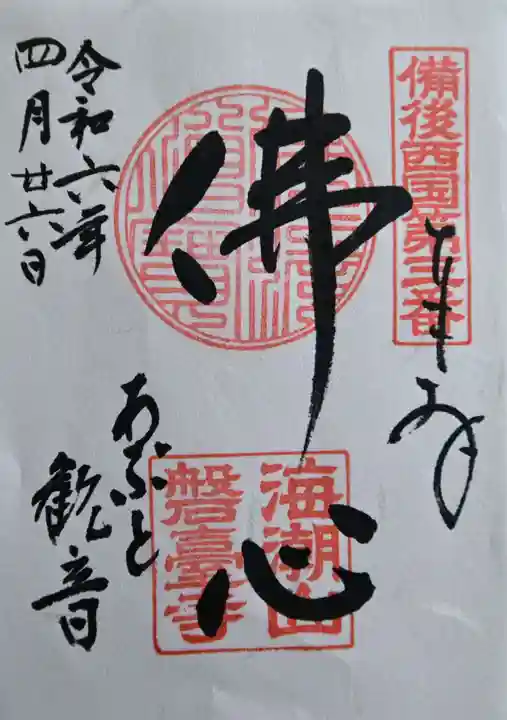 備後西国第三番
奉拝
佛心
海潮山
磐臺寺
令和六年
四月廿六日
あぶと
観音